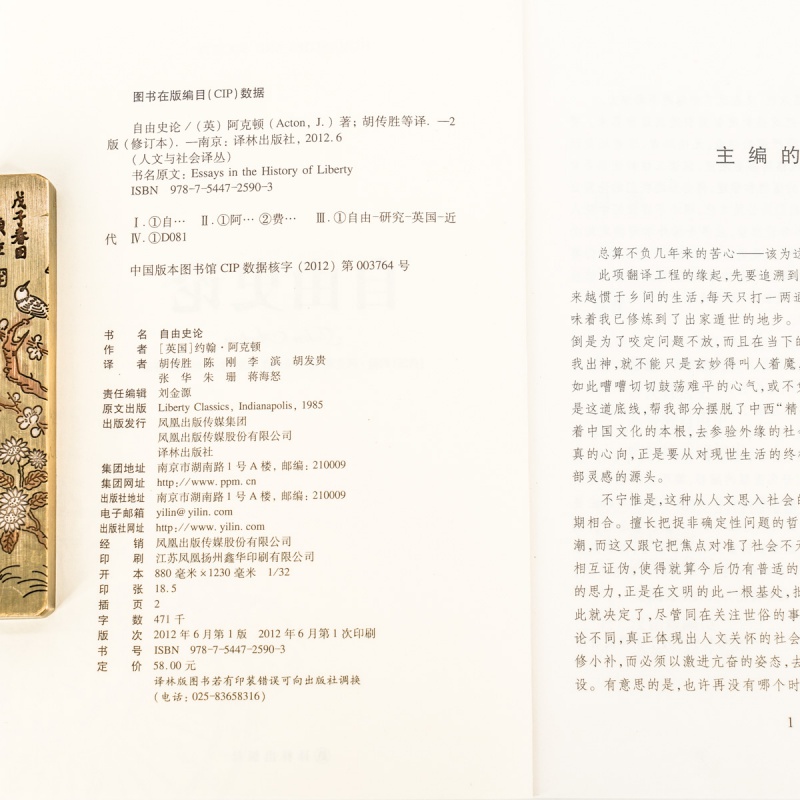 图书在版编目(CIP)数据
自由史论/(英)阿克顿(Acton, J.)著;胡传胜等译. —2
版(修订本). —南京:译林出版社, 2012.6
(人文与社会译丛)
书名原文: Essays in the History of Liberty
ISBN 978-7-5447-2590-3
Ⅰ.①自… Ⅱ.①阿… ②费… Ⅲ.①自由-研究-英国-近
代 Ⅳ.①D081
中国版本图书馆CIP数据核字(2012)第003764号
书 名 自由史论
作 者 [英国]约翰·阿克顿
译 者 胡传胜 陈 刚 李 滨 胡发贵
张 华 朱 珊 蒋海怒
责任编辑 刘金源
原文出版 Liberty Classics, Indianapolis, 1985
出版发行 凤凰出版传媒集团
凤凰出版传媒股份有限公司
译林出版社
集团地址 南京市湖南路1号A楼, 邮编: 210009
集团网址 http://www.ppm.cn
出版社地址 南京市湖南路1号A楼, 邮编: 210009
电子邮箱 yilin@yilin.com
出版社网址 http://www.yilin.com
经 销 凤凰出版传媒股份有限公司
印 刷 江苏凤凰扬州鑫华印刷有限公司
开 本 880毫米×1230毫米 1/32
印 张 18.5
插 页 2
字 数 471千
版 次 2012年6月第1版 2012年6月第1次印刷
书 号 ISBN 978-7-5447-2590-3
定 价 58.00元
译林版图书若有印装错误可向出版社调换
(电话: 025-83658316)
戊子春日
主编的
总算不负几年来的苦心——该为这
此项翻译工程的缘起,先要追溯到
来越惯于乡间的生活,每天只打一两通
味着我已修炼到了出家遁世的地步。
倒是为了咬定问题不放,而且在当下的
我出神,就不能只是玄妙得叫人着魔,
如此嘈嘈切切鼓荡难平的心气,或不免
是这道底线,帮我部分摆脱了中西“精
着中国文化的本根,去参验外缘的社会
真的心向,正是要从对现世生活的终极
部灵感的源头。
不宁惟是,这种从人文思入社会的
期相合。擅长把捉非确定性问题的哲
潮,而这又跟它把焦点对准了社会不
相互证伪,使得就算今后仍有普适的
的思力,正是在文明的此一根基处,批
此就决定了,尽管同在关注世俗的事
论不同,真正体现出人文关怀的社会
修小补,而必须以激进亢奋的姿态,去
设。有意思的是,也许再没有哪个时
1